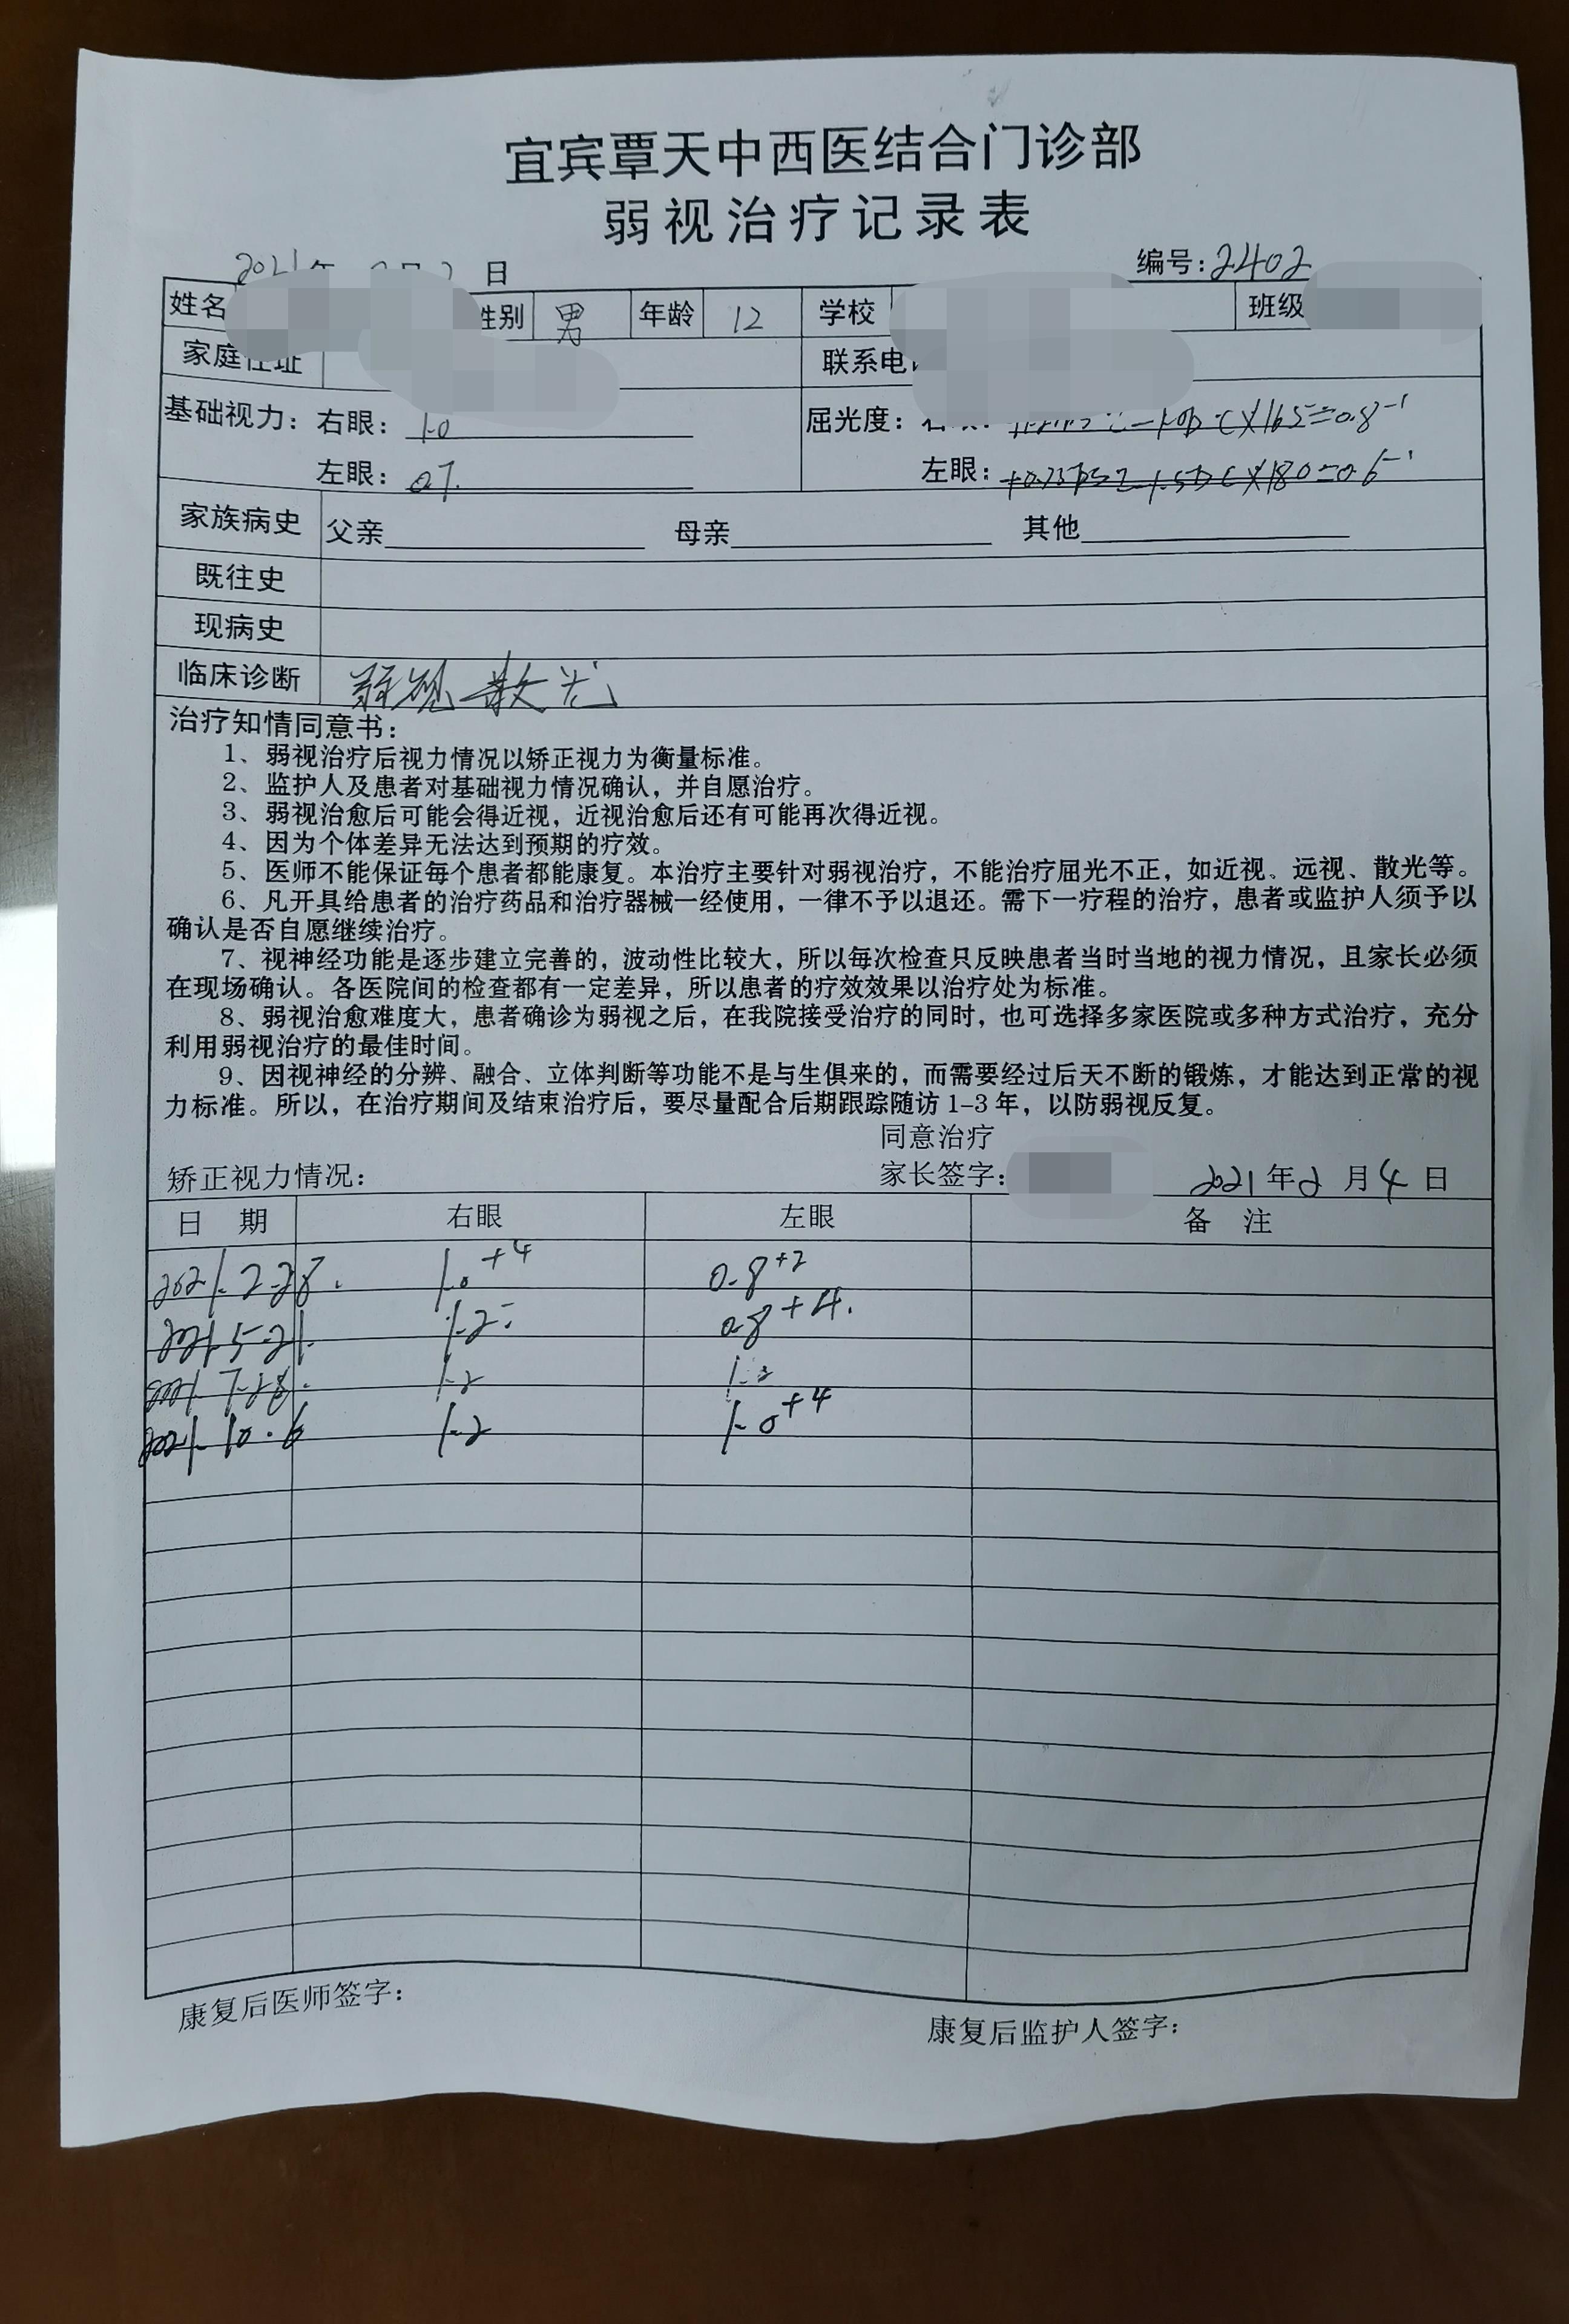 宜宾覃天中西医结合门诊部
弱视治疗记录表
2021年 日 编号:2402
姓名 性别 男 年龄 12 学校 班级
家庭住址 联系电
基础视力: 右眼: 1.0 屈光度: ×165=0.8⁻¹
左眼: 0.7 左眼: ×180=0.6⁻¹
家族病史 父亲 母亲 其他
既往史
现病史
临床诊断 弱视 散光
治疗知情同意书:
1、弱视治疗后视力情况以矫正视力为衡量标准。
2、监护人及患者对基础视力情况确认，并自愿治疗。
3、弱视治愈后可能会得近视，近视治愈后还有可能再次得近视。
4、因为个体差异无法达到预期的疗效。
5、医师不能保证每个患者都能康复。本治疗主要针对弱视治疗，不能治疗屈光不正，如近视。远视、散光等。
6、凡开具给患者的治疗药品和治疗器械一经使用，一律不予以退还。需下一疗程的治疗，患者或监护人须予以
确认是否自愿继续治疗。
7、视神经功能是逐步建立完善的，波动性比较大，所以每次检查只反映患者当时当地的视力情况，且家长必须
在现场确认。各医院间的检查都有一定差异，所以患者的疗效效果以治疗处为标准。
8、弱视治愈难度大，患者确诊为弱视之后，在我院接受治疗的同时，也可选择多家医院或多种方式治疗，充分
利用弱视治疗的最佳时间。
9、因视神经的分辨、融合、立体判断等功能不是与生俱来的，而需要经过后天不断的锻炼，才能达到正常的视
力标准。所以，在治疗期间及结束治疗后，要尽量配合后期跟踪随访1-3年，以防弱视反复。
同意治疗
矫正视力情况: 家长签字: 2021年2月4日
日 期 右眼 左眼 备 注
2021.2.28. 1.0⁺⁴ 0.8⁺²
2021.5.21. 1.2 0.8⁺⁴.
2021.7.28. 1.2
2021.10.6 1.2 1.0⁺⁴
康复后医师签字:
康复后监护人签字: